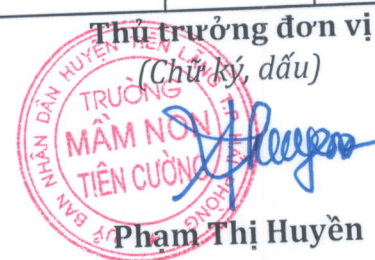 Thủ trưởng đơn vị
(Chữ ký, dấu)
ỦY BAN NHÂN DÂN HUYỆN TIÊN LÃNG T.P HẢI PHÒNG
TRƯỜNG
MẦM NON
TIÊN CƯỜNG
Phạm Thị Huyền